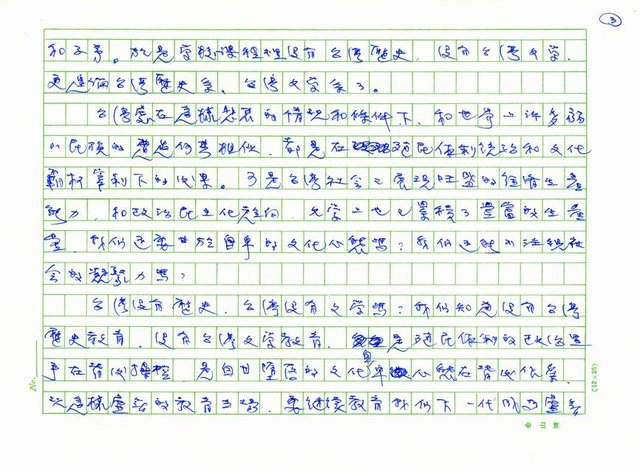 ③
和矛盾。於是學校課程裡沒有台灣歷史、沒有台灣文學，
更遑論台灣歷史系、台灣文學系了。
台灣意在這樣悲哀的情況和條件下，和世界上許多弱
小民族的 何其相似，都是在 殖民体制統治和文化
霸权宰制下的後果。可是台灣社会已展現旺盛的經濟生產
能力，和政治民主化走向，文學上也已累積了豐富的生產
量，我們还要甘於自卑的文化心態嗎？我們还能不正視社
会的凝聚力嗎？
台灣沒有歷史，台灣沒有文學嗎？我們知道沒有台灣
歷史教育，沒有台灣文學教育， 是殖民体制的政治黑
手在背後操控，是自甘墮落的文化卑 心態在背後作祟。
這樣虛 的教育 ，要继续教育我們下一代
No.
(12×25)